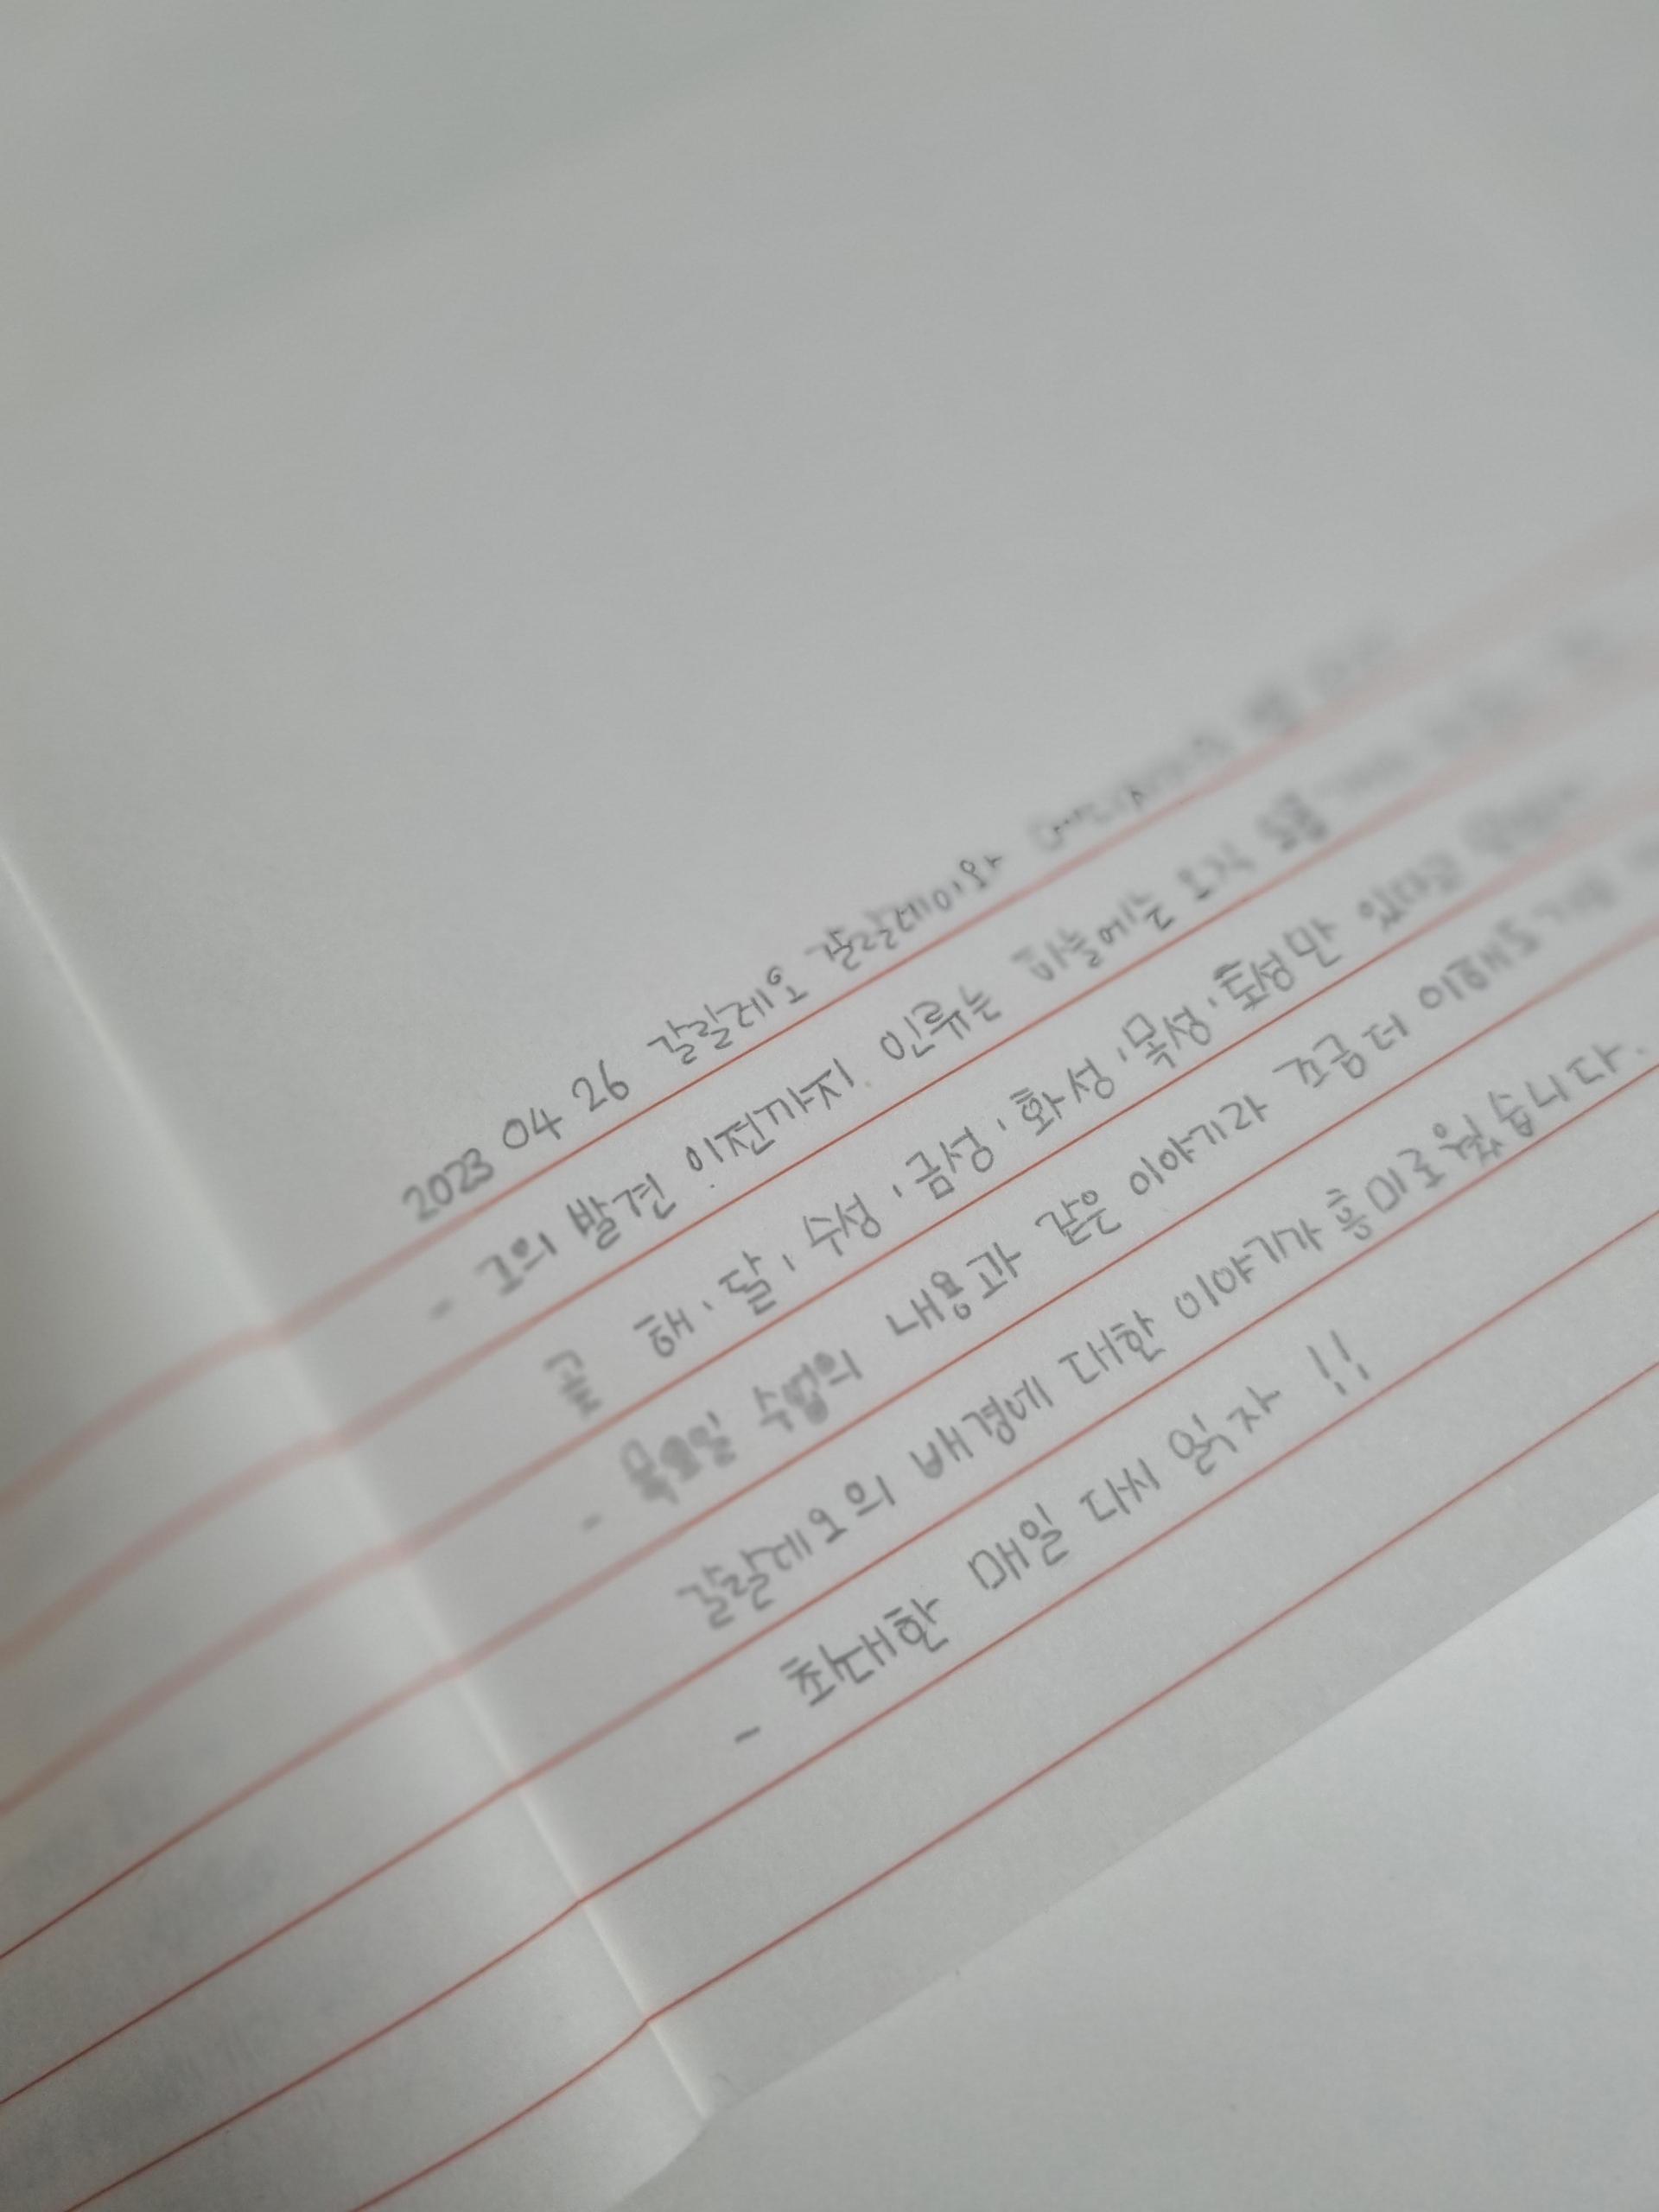 2023 04 26 갈릴레오 갈릴레이와
- 그의 발견 이전까지 인류는 하늘에는 오직 5대
곧 해, 달, 수성, 금성, 화성, 목성, 토성만 있다고
- 목요일 수업의 내용과 같은 이야기라 조금 더 이해도가
갈릴레오의 배경에 대한 이야기가 흥미로웠습니다.
- 최대한 매일 다시 읽자 !!